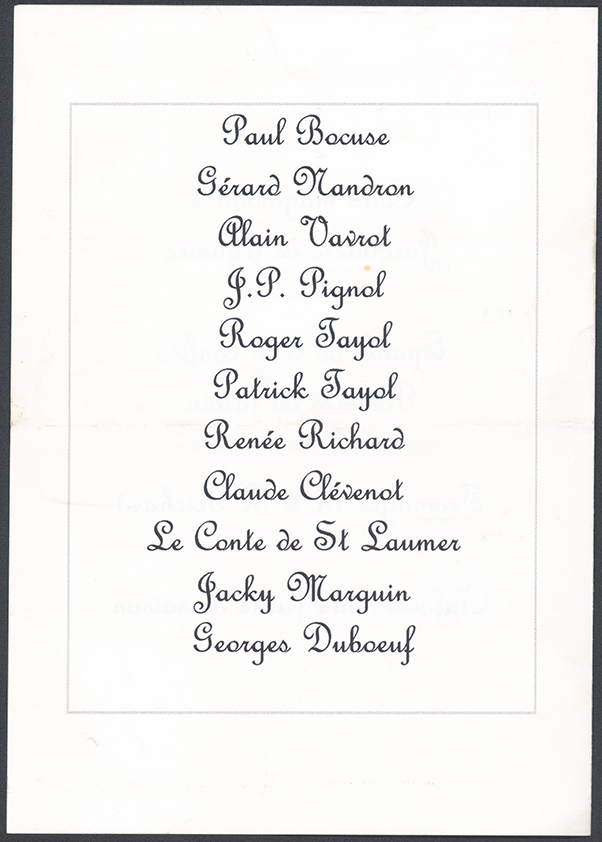 Paul Bocuse
Gérard Nandron
Alain Vavrot
J.P. Pignol
Roger Tayol
Patrick Tayol
Renée Richard
Claude Clévenot
Le Conte de St Laumer
Jacky Marguin
Georges Duboeuf